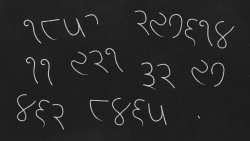 ૧૮૫૧ ૨૯૭૬૧૪
૧૧ ૯૨૧ ૩૨ ૯૭
૪૬૨ ૮૪૬૫ .